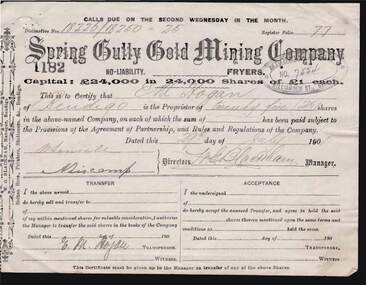 CALLS DUE ON THE SECOND WEDNESDAY IN THE MONTH.
Distinctive Nos. 18226/18250 - 25 Register Folio 77
Spring Gully Gold Mining Company
1182 NO-LIABILITY. FRYERS.
Capital: £24,000 in 24,000 Shares of £1 each.
This is to Certify that E M Hogan
of Bendigo is the Proprietor of Twenty five shares
in the above-named Company, on each of which the sum of has been paid subject to
the Provisions of the Agreement of Partnership, and Rules and Regulations of the Company.
Dated this day of July 190
Directors Manager.
TRANSFER
I the above named
do hereby sell and transfer to
of
of my within mentioned shares for valuable consideration, I authorise
the Manager to transfer the said shares in the books of the Company
Dated this day of 190
E. M. Hogan TRANSFEROR.
WITNESS
ACCEPTANCE
I the undersigned
of
do hereby accept the annexed Transfer, and agree to hold the said
shares therein mentioned upon the same terms and
conditions to the same.
Dated this day of 190
TRANSFEREE,
WITNESS
This Certificate must be given up to the Manager on transfer of any of the above Shares